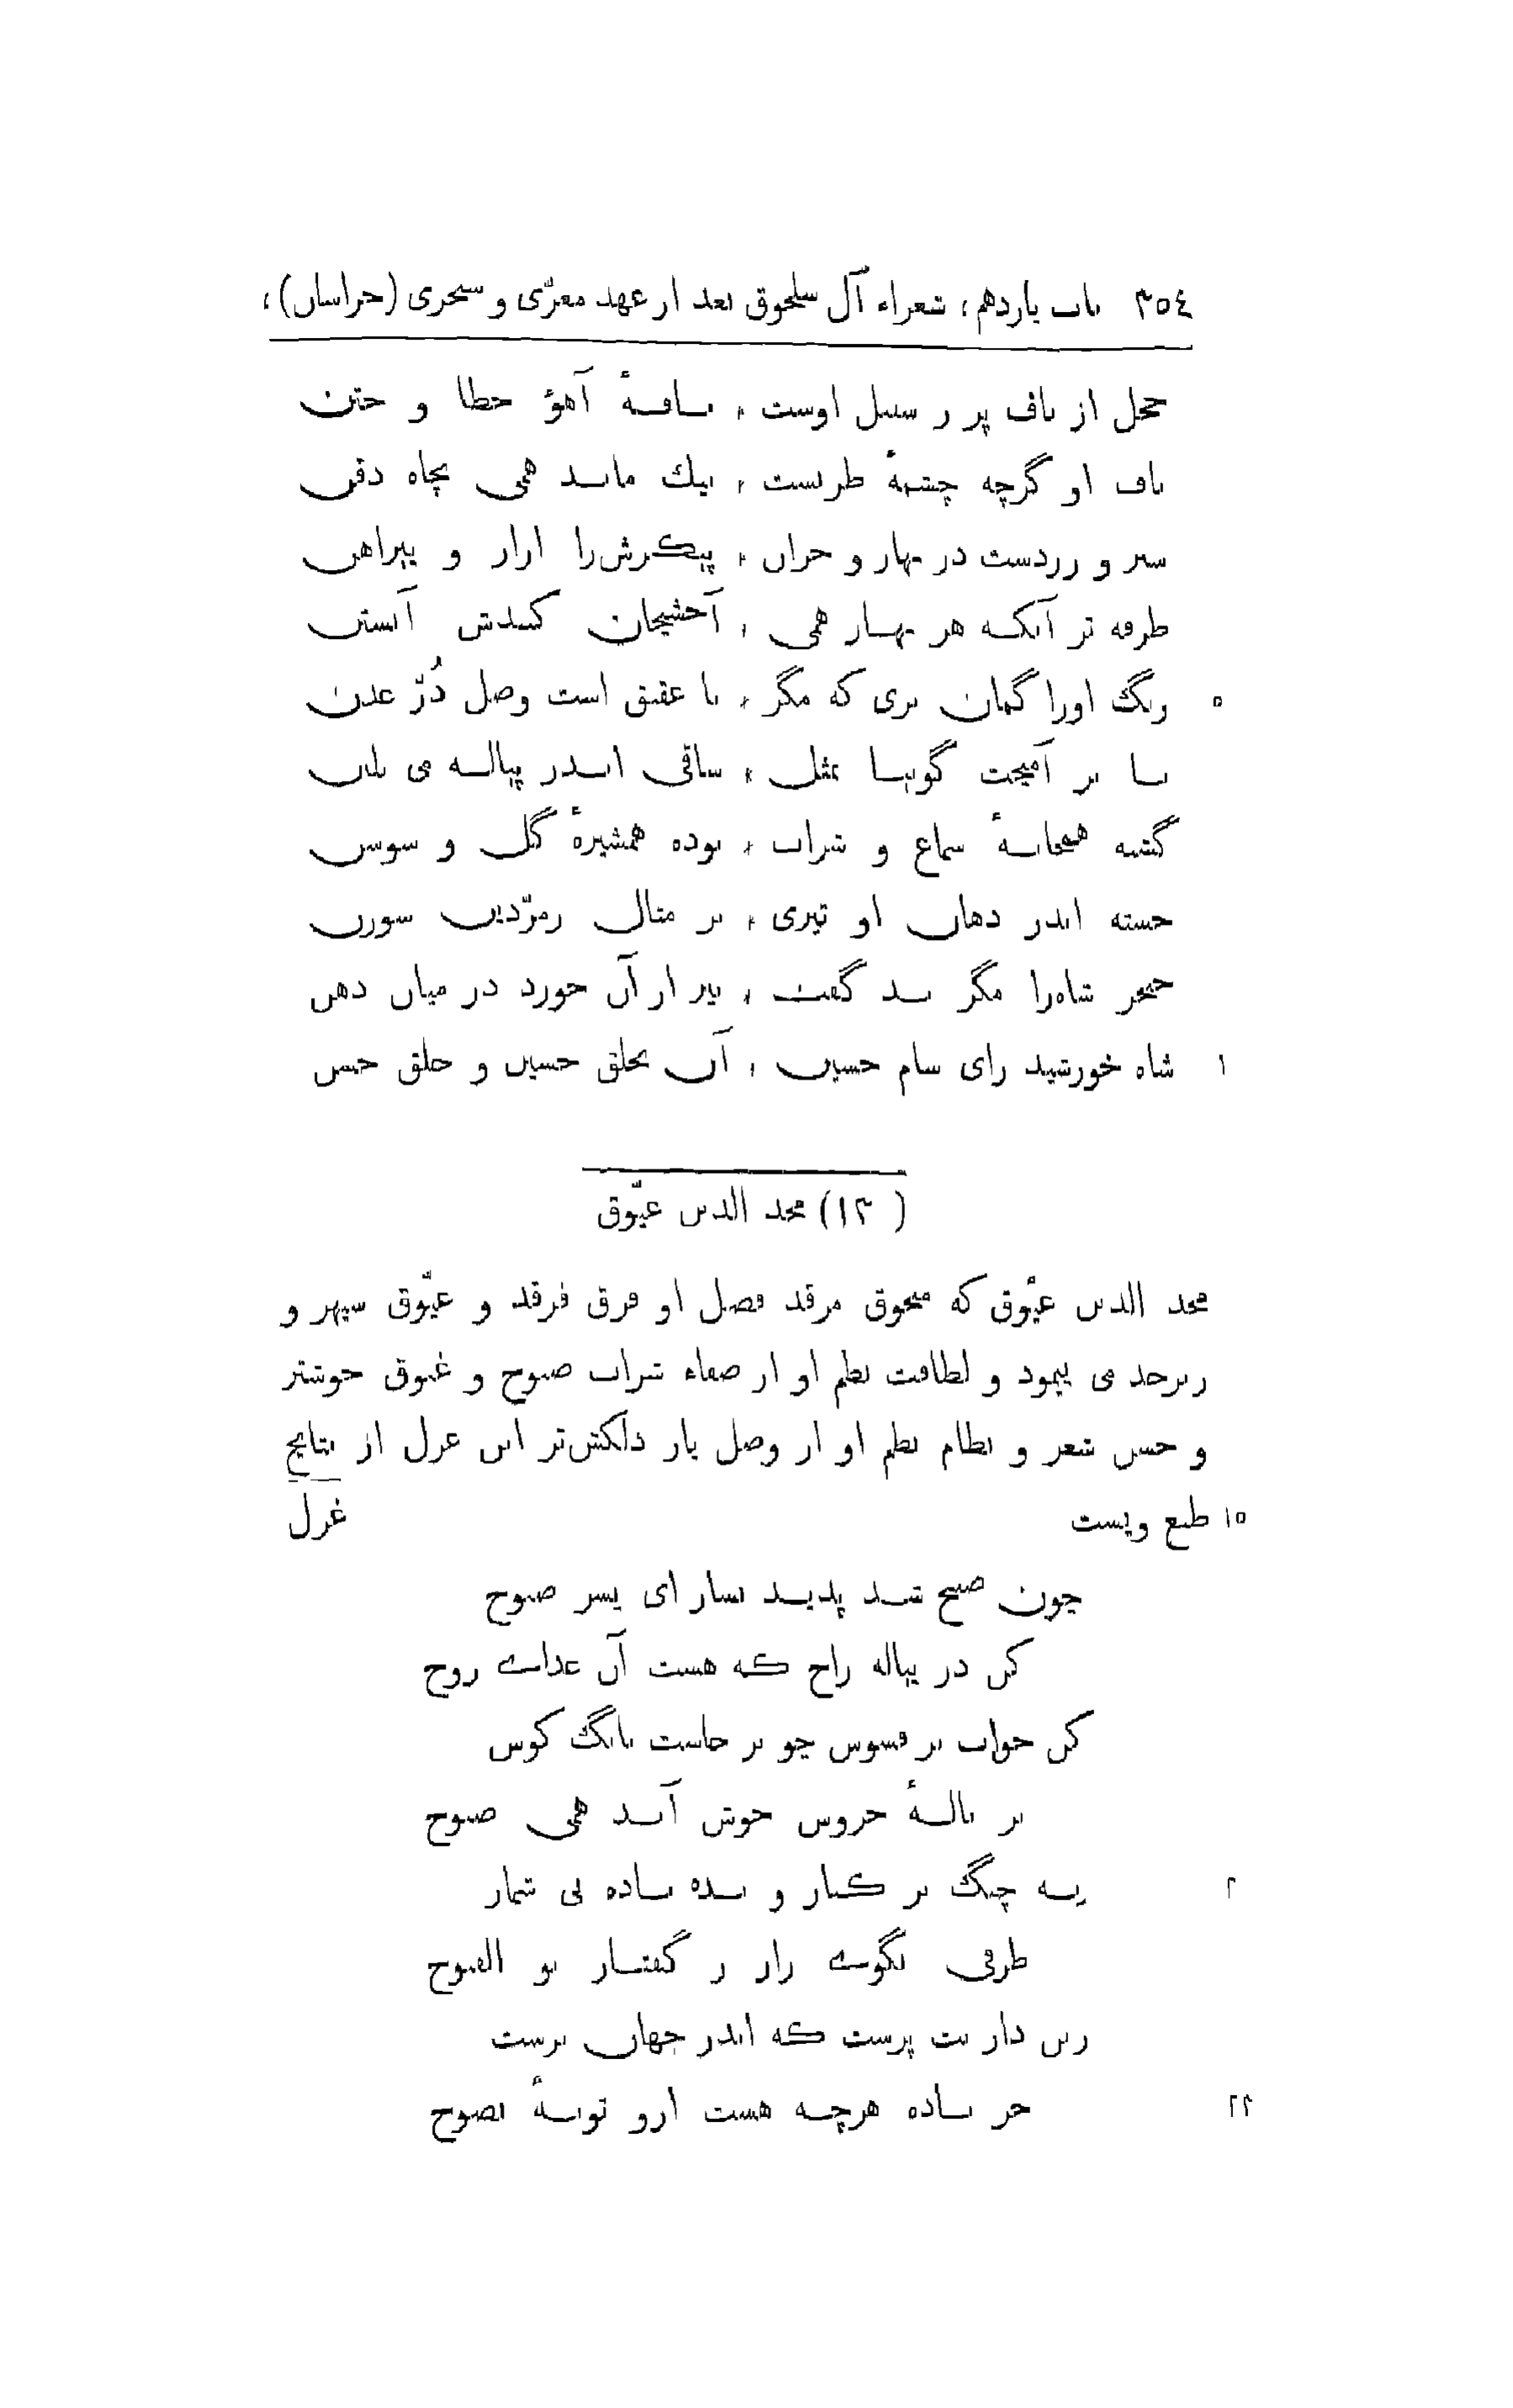 ٣٥٤ باب يازدهم، شعراء آل سلجوق بعد از عهد معزّى و سنجرى (خراسان)،
خجل از ناف پر ز سنبل اوست ، نـافـهٔ آهوٴ خطا و ختن
ناف او گرچه چشمهٔ طربست ، نيك مانـد همى بچاه ذقن
سبز و زردست در بهار و خزان ، پيكرش‌را ازار و پيراهن
طرفه تر آنكـه هر بهـار همى ، آخشيجان كنندش آبستن
رنگ اورا گمان برى كه مگر ، با عقيق است وصل دُرّ عدن
يـا بر آميخت گوييـا بمثل ، ساقى انـدر پيالـه مى بلبن
گشته همخانـهٔ سماع و شراب ، بوده همشيرهٔ گل و سوسن
خسته اندر دهان او تيرى ، بر مثال زمرّدين سوزن
خنجر شاه‌را مگر بـد گفت ، تير از آن خورد در ميان دهن
١ شاه خورشيد راى سام حسين ، آن بخلق حسين و خلق حسن
(١٣) مجد الدين عيّوق
مجد الدين عيّوق كه منجوق مرقد فضل او فرق فرقد و عيّوق سپهر و
زبرجد مى پيمود و لطافت نظم او از صفاء شراب صبوح و غبوق خوشتر
و حسن شعر و نظام نظم او از وصل يار دلكش‌تر اين غزل از نتايج
١٥ طبع ويست غزل
چون صبح شـد پديـد بساز اى پسر صبوح
كن در پياله راح كـه هست آن غذاى روح
كن خواب بر فسوس چو بر خاست بانگ كوس
بر نالـهٔ خروس خوش آيـد همى صبوح
٢ بنـه چنگ بر كـنار و بـده بـاده بى شمار
طرفى بگوى راز ز گفتـار بو الفتوح
زين دار بت پرست كه اندر جهان برست
٢٢ جز بـاده هرچـه هست ازو توبـهٔ نصوح